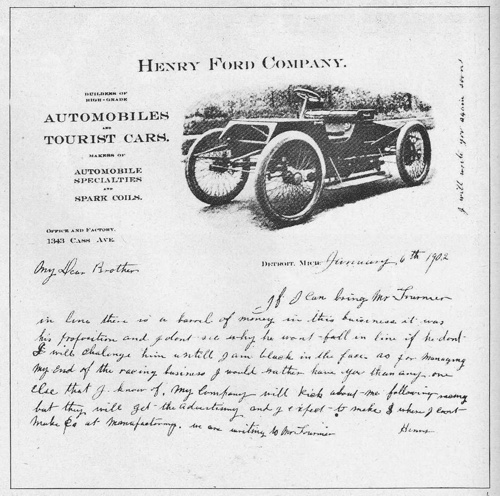 HENRY FORD COMPANY.
BUILDERS OF
HIGH-GRADE
AUTOMOBILES
AND
TOURIST CARS.
MAKERS OF
AUTOMOBILE
SPECIALTIES
AND
SPARK COILS.
OFFICE AND FACTORY.
1343 CASS AVE.
DETROIT, MICH. January 6th 1902
My Dear Brother
If I Can bring Mr Fournier
in line there is a barrel of money in this business it was
his proposition and I dont see why he wont fall in line if he dont
I will challenge him untill I am black in the face. as for managing
my end of the racing business I would rather have you than any one
else that I know of. My Company will kick about me following racing
but they will get the advertising and I expect to make $ where I cant
make ¢s at manufacturing. we are writing to Mr Fournier
Henry
I will write you again soon